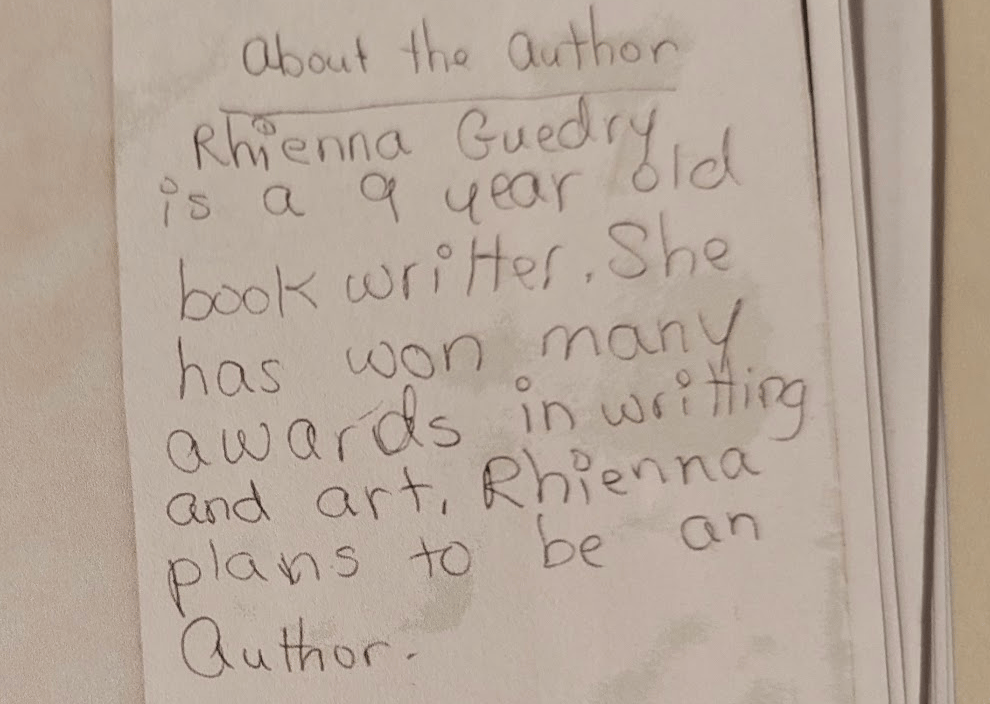 about the author
Rhienna Guedry
is a 9 year old
book writter. She
has won many
awards in writting
and art. Rhienna
plans to be an
Author.